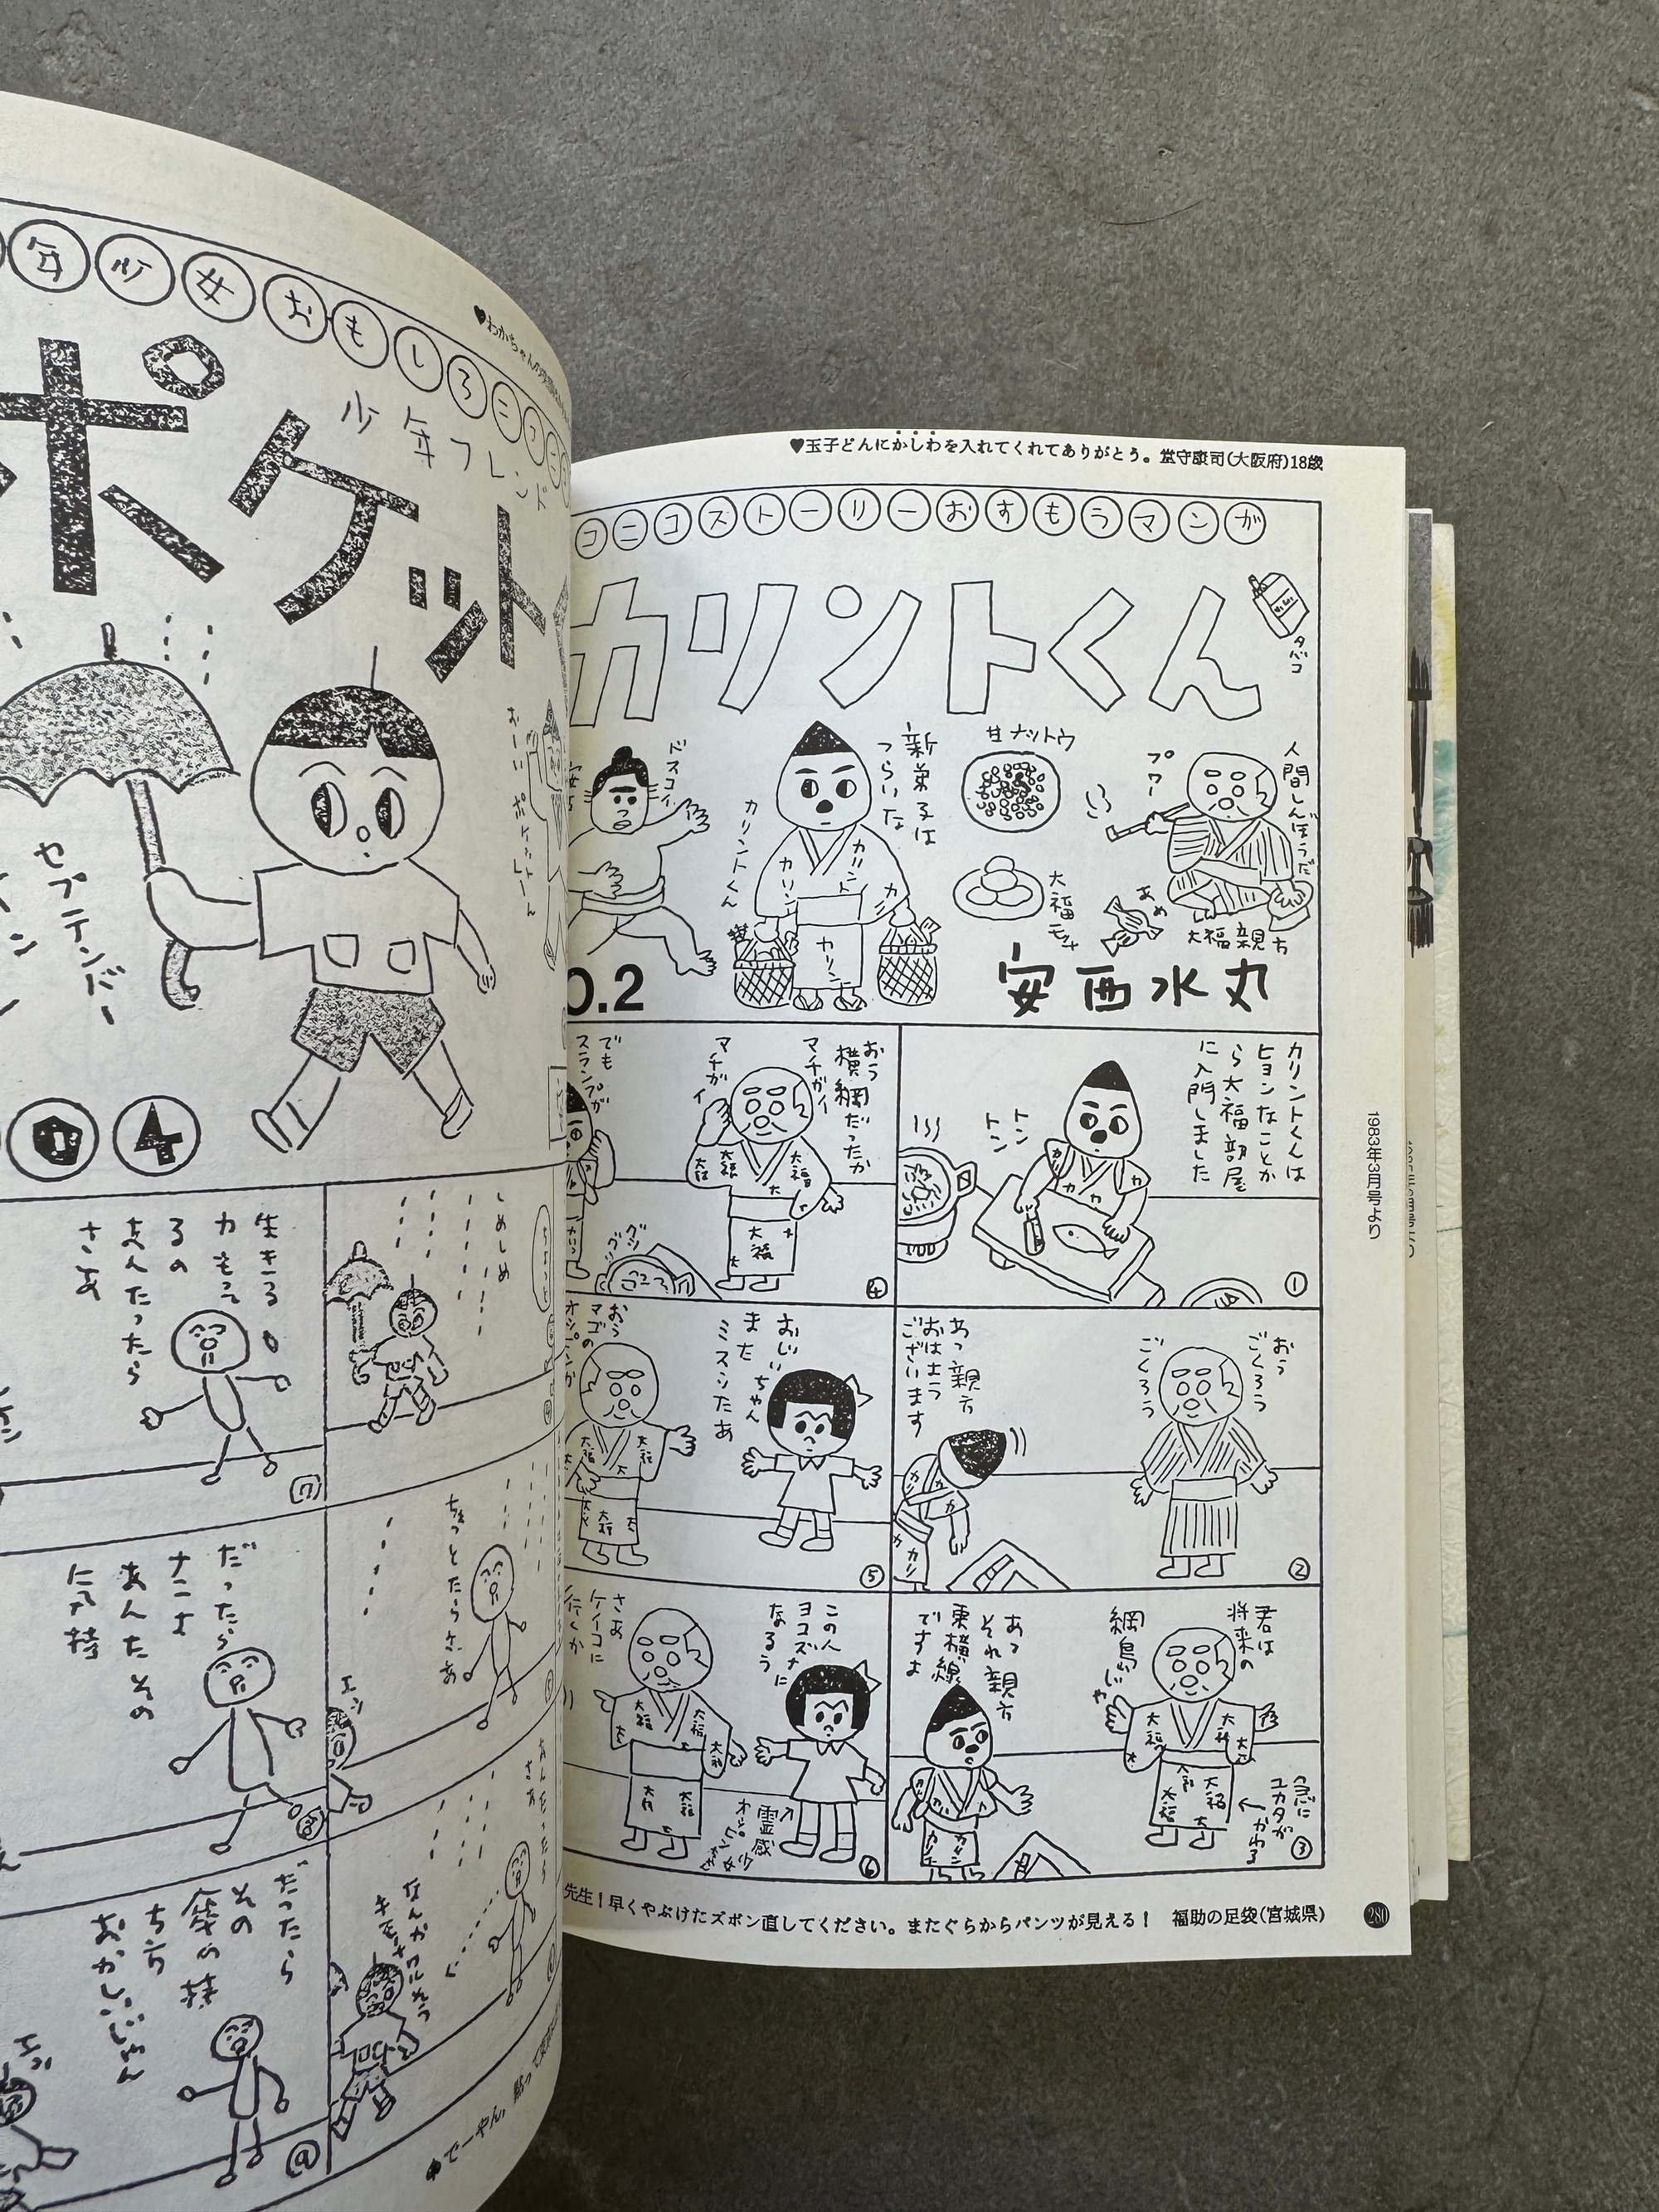 ♥玉子どんにかしわを入れてくれてありがとう。堂守康司(大阪府)18歳
コニコストーリーおすもうマンガ
カリントくん
タバコ
人間しんぼうだ
プワー
大福親方
甘ナットウ
大福モチ
あめ
新弟子は
つらいな
カリントくん
カリント
カリン
カ
カリン
ドスコイ
安西水丸
O.2
カリントくんは
ヒョンなことか
ら大福部屋
に入門しました
トン
トン
①
おう
ごくろう
ごくろう
あっ親方
おはよう
ございます
②
君は
将来の
綱島じゃ
あっ
それ親方
東横線
ですよ
急に
ユカタが
かわる
③
おう
横綱だったか
マチガイ
マチガイ
でも
スランプが
大福
④
おじいちゃん
また
ミスしたあ
おう
マゴの
オシピンか
⑤
この人
ヨコズナに
なるう
さあ
ケイコに
行くか
霊感
⑥
先生!早くやぶけたズボン直してください。またぐらからパンツが見える! 福助の足袋(宮城県)
280
1983年3月号より
年少女おもしろ
ポケット
少年フレンド
おーいポケットしーん
セプテンバー
しめしめ
ちょっとたらさあ
エッ
なんかワルそう
生きる
力もって
るの
あんたったら
さあ
だったら
ナニよ
あんたその
気持
だったら
その
傘の持
ち方
おかしいじゃん
エッ